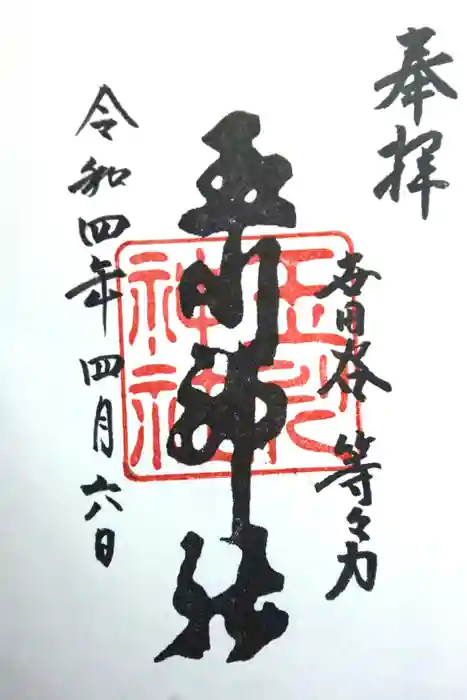 奉拝
世田谷 等々力
玉川神社
玉川
神社
令和四年四月六日